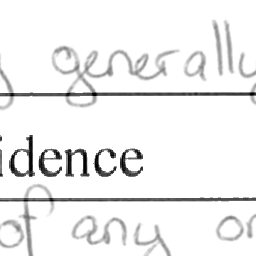 generally
idence
of any or